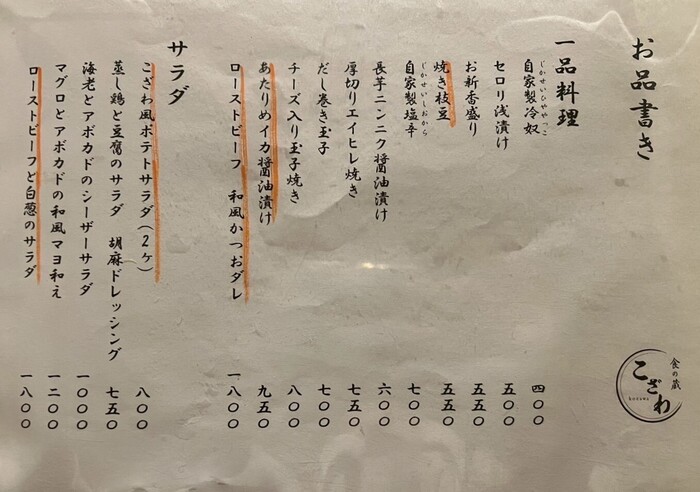 お品書き
一品料理
じかせいひややっこ
自家製冷奴 四〇〇
セロリ浅漬け 五〇〇
お新香盛り 五五〇
焼き枝豆 五五〇
じかせいしおから
自家製塩辛 七〇〇
長芋ニンニク醤油漬け 六〇〇
厚切りエイヒレ焼き 七五〇
だし巻き玉子 七〇〇
チーズ入り玉子焼き 八〇〇
あたりめイカ醤油漬け 九五〇
ローストビーフ 和風かつおダレ 一八〇〇
サラダ
こざわ風ポテトサラダ(2ヶ) 八〇〇
蒸し鶏と豆腐のサラダ 胡麻ドレッシング 七五〇
海老とアボカドのシーザーサラダ 一〇〇〇
マグロとアボカドの和風マヨ和え 一二〇〇
ローストビーフと白葱のサラダ 一八〇〇
食の蔵
こざわ